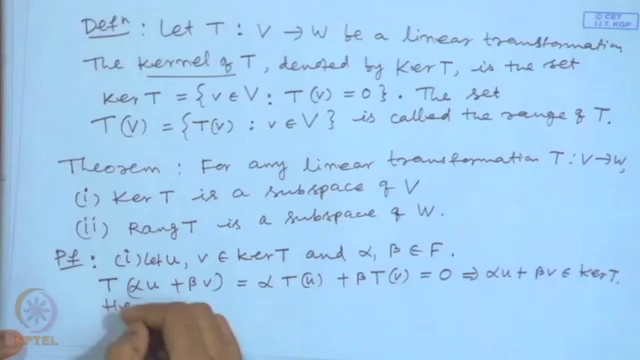 © CET
I.I.T. KGP
Defⁿ : Let T : V → W be a linear transformation
The Kernel of T, denoted by Ker T, is the set
Ker T = {v ∈ V : T(v) = 0}. The set
T(V) = {T(v) : v ∈ V} is called the range of T.
Theorem : For any linear transformation T : V → W,
(i) Ker T is a subspace of V
(ii) Rang T is a subspace of W.
Pf : (i) Let u, v ∈ Ker T and α, β ∈ F.
T (αu + βv) = α T(u) + β T(v) = 0 ⇒ αu + βv ∈ Ker T.
NPTEL